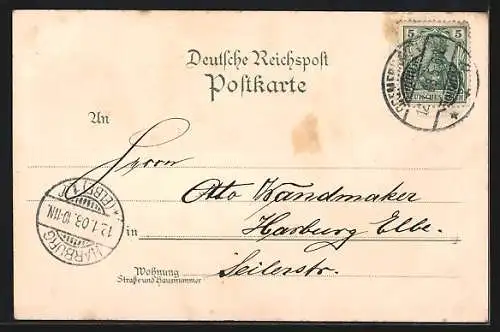 Deutsche Reichspost
Postkarte
5 5
An
Herrn
Otto Wandmaker
in Harburg Elbe.
Seilerstr.
Wohnung
Straße und Hausnummer
HARBURG
(ELBE) 1
12.1.03. 10-11N.